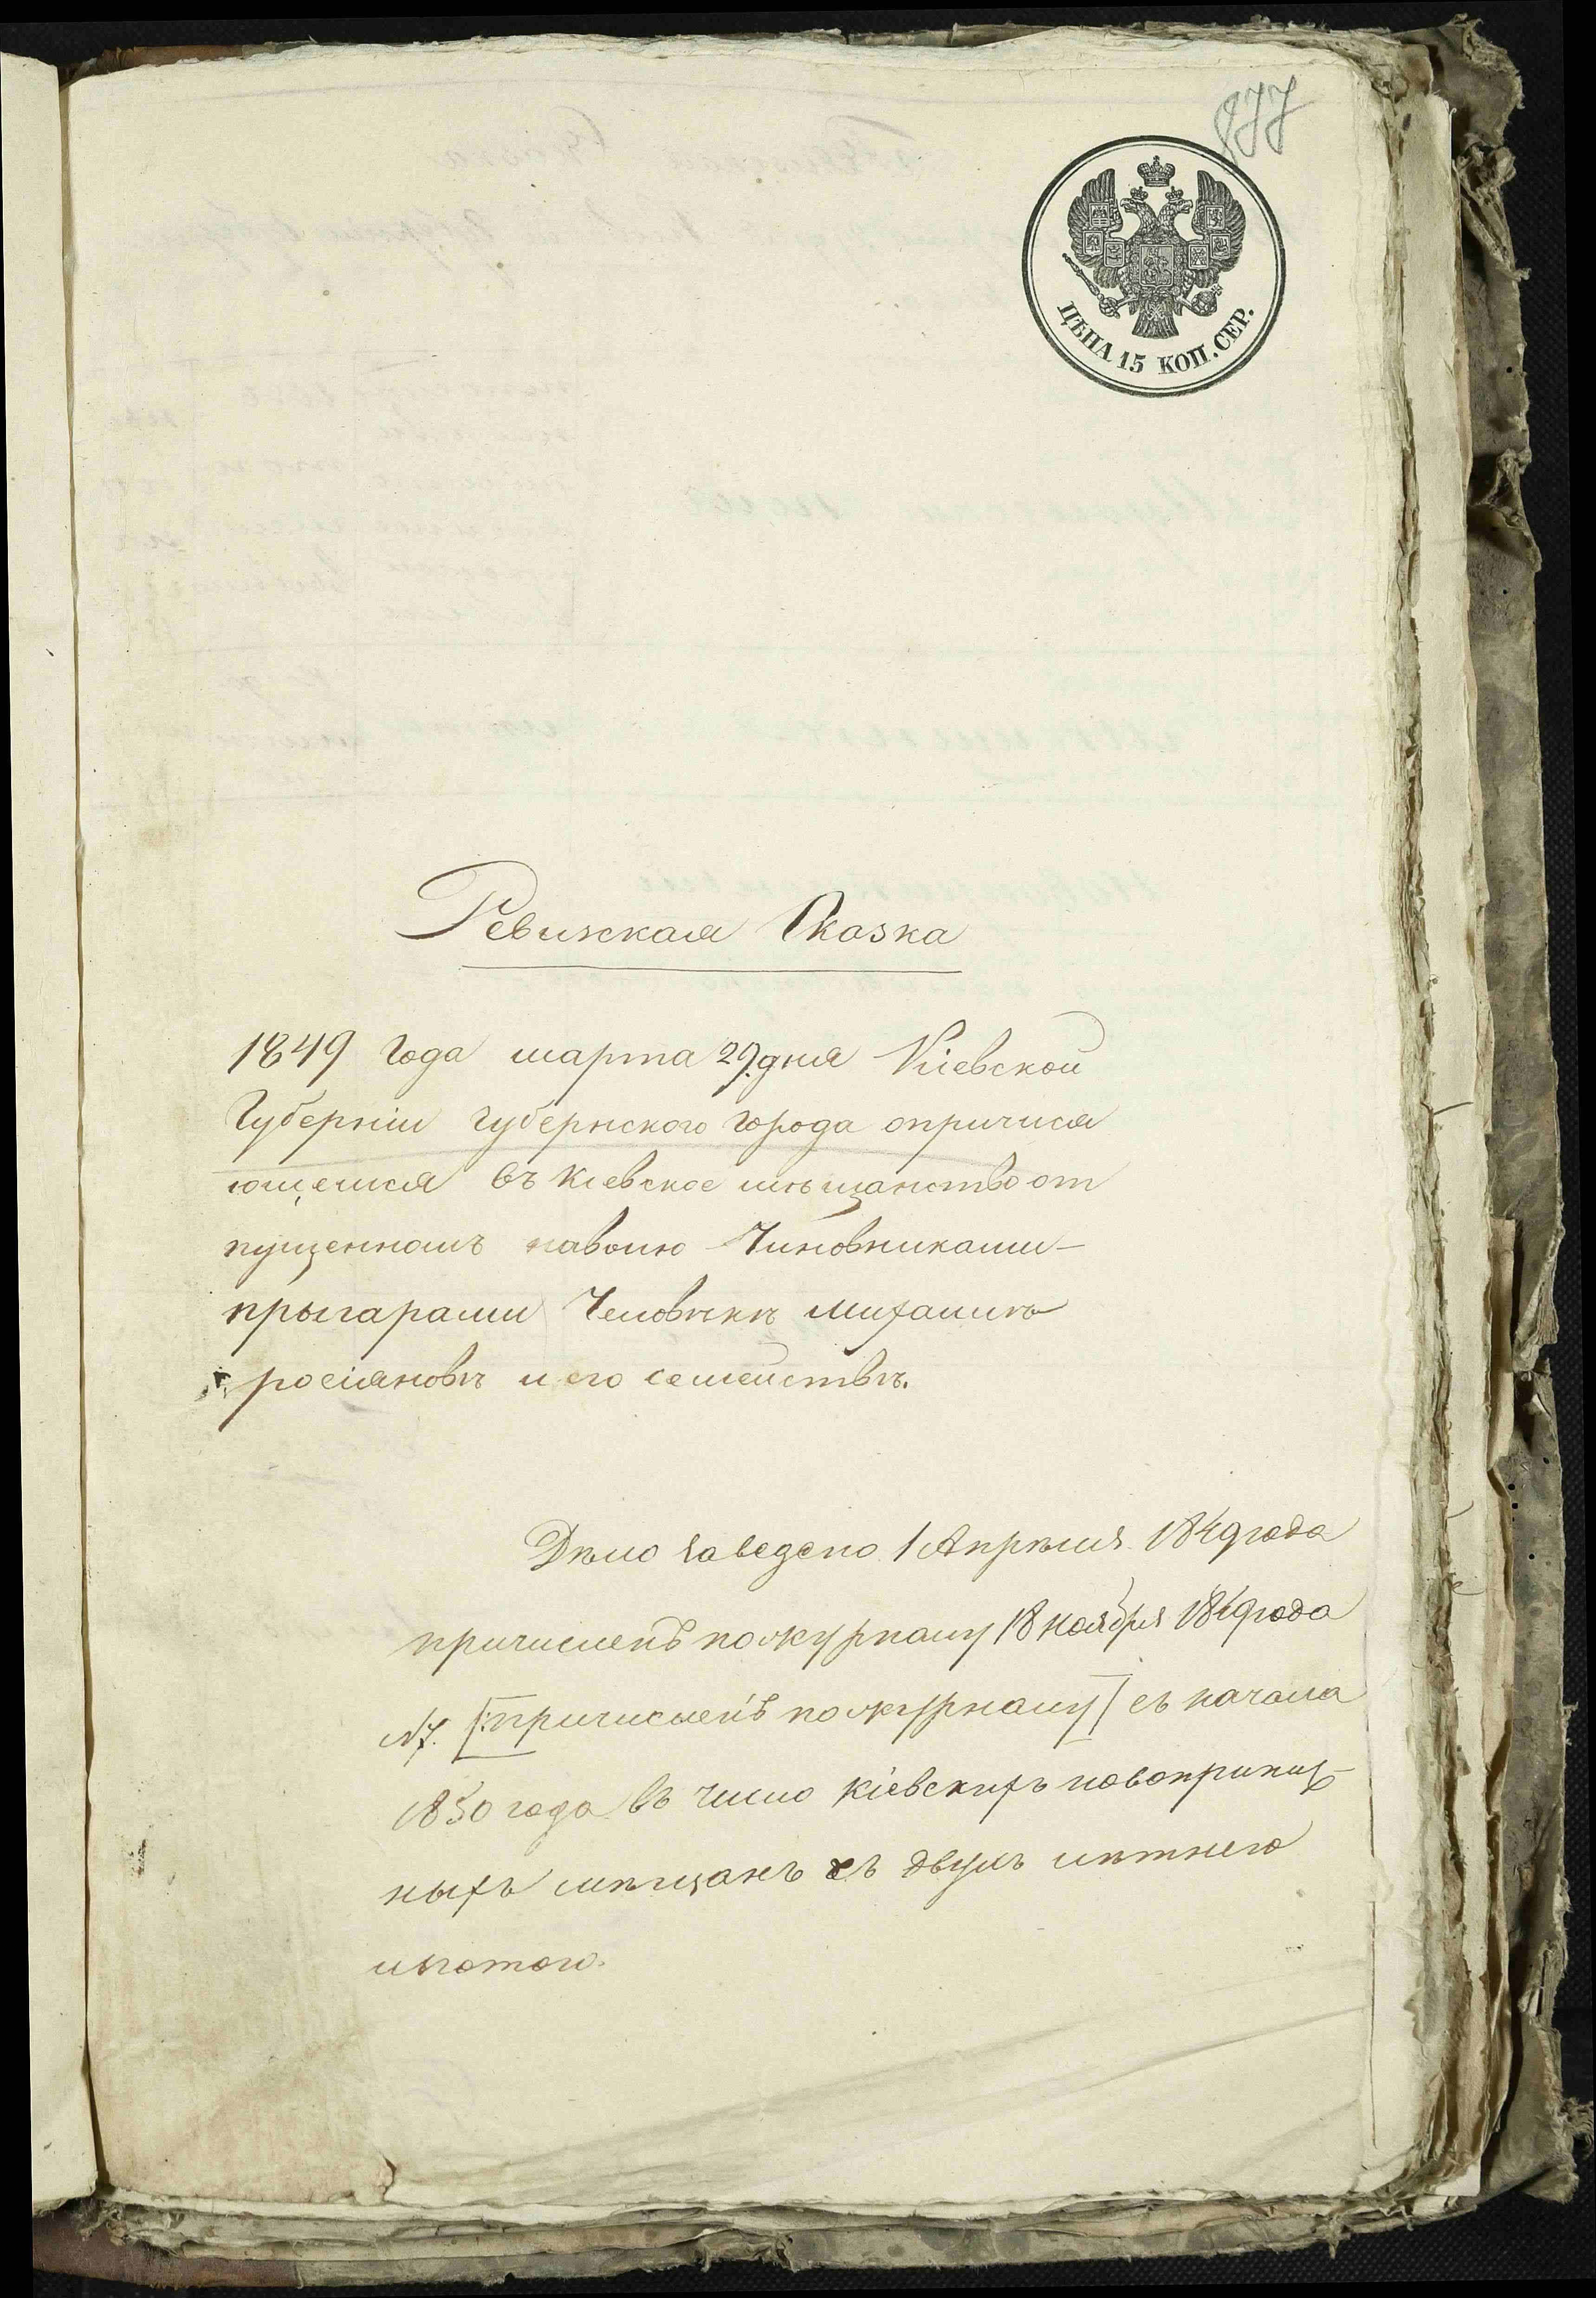 877
ЦѢНА 15 КОП. СЕР.
Ревижкая Сказка
1849 Года марта 29. дня Кіевской
Губерніи Губернского Города опричисля
ющемся въ Кіевское мѣщанство от
пущенномъ наволю Чиновниками
прыгарами Человѣкѣ Михаилѣ
росіяновѣ и его семействѣ.
Дѣло заведено 1 Апрѣля 1849 года
причисленъ пожурналу 18 ноября 1849 года
№ 7. [причисленъ пожурналу] съ начала
1850 года въ число кіевскихъ новопринят
ныхъ мѣщанъ съ двухъ лѣтнею
льготою.